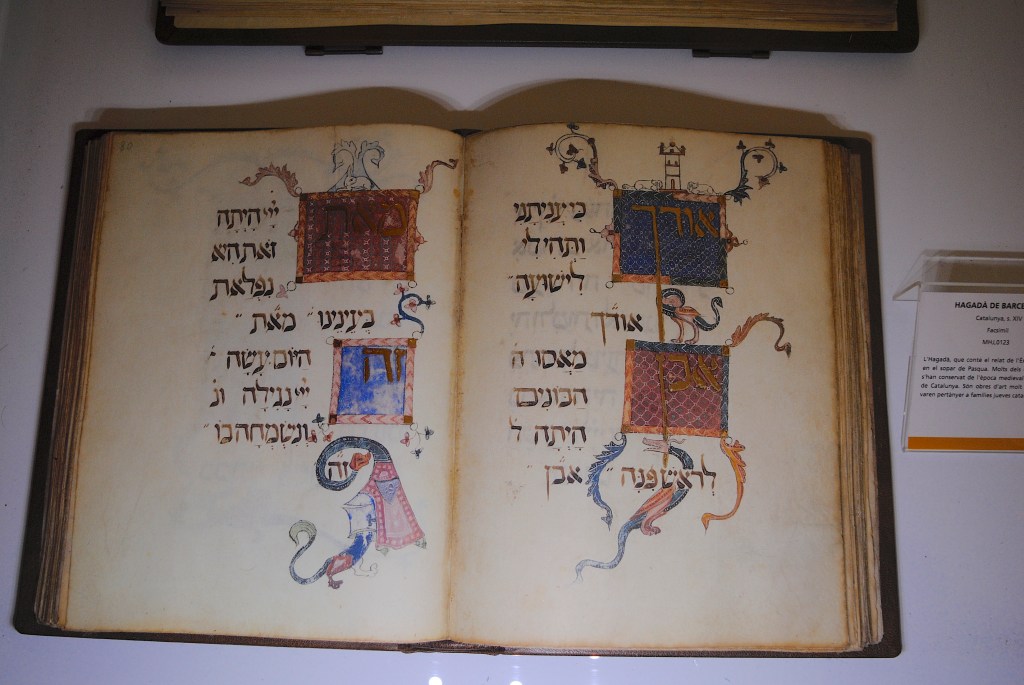 אודך כי עניתני
ותהי לי
לישועה
אודך
אבן מאסו ה
הבונים
היתה ל
לראש פנה אבן
מאת יי היתה
זאת היא
נפלאת
בעינינו מאת
זה היום עשה
יי נגילה ונ
ונשמחה בו
זה
HAGADÀ DE BARCE
Catalunya, s. XIV
Facsímil
MHL0123
L'Hagadà, que conté el relat de l'È
en el sopar de Pasqua. Molts dels
s'han conservat de l'època medieval
de Catalunya. Són obres d'art molt
varen pertànyer a famílies jueves cata